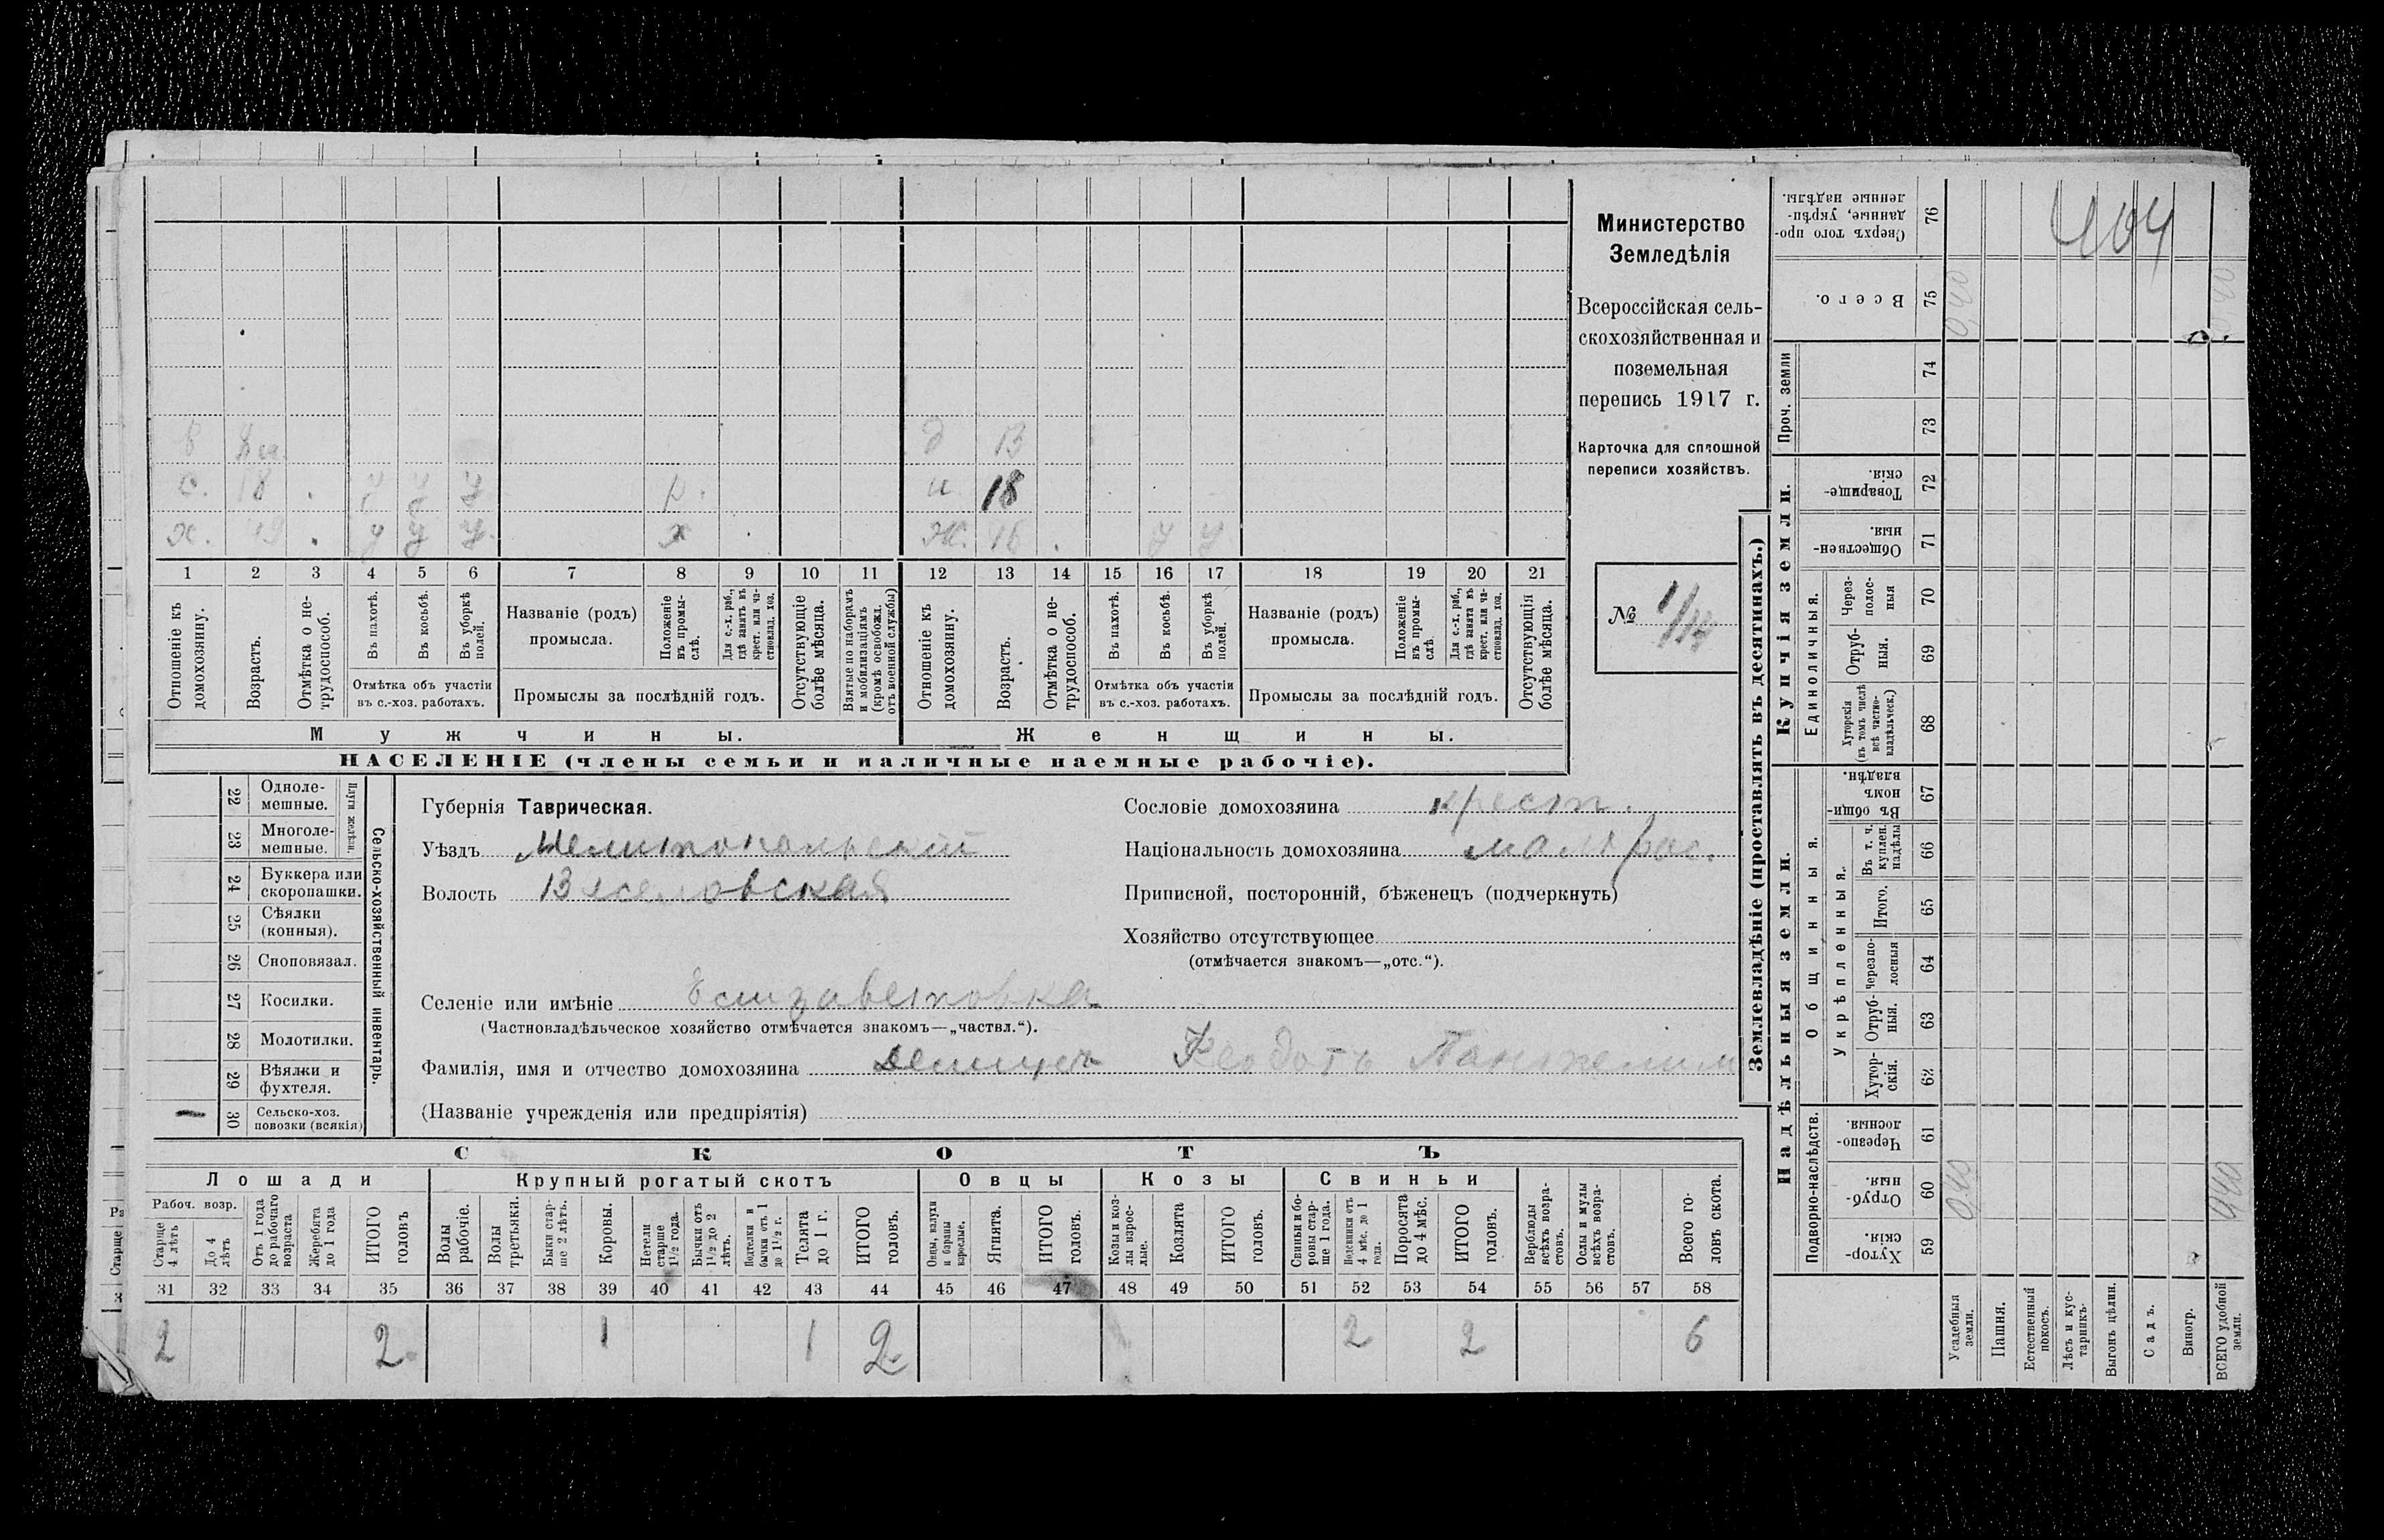 Министерство
Земледѣлія
Всероссійская сель-
скохозяйственная и
поземельная
перепись 1917 г.
Карточка для сплошной
переписи хозяйствъ.
№ 1/
в
д 13
с. 18 . у у у р. н 18
х. 49 . у у у х . Ж. 46 . у у
1 2 3 4 5 6 7 8 9 10 11 12 13 14 15 16 17 18 19 20 21
Отношеніе къ домохозяину.
Возрастъ.
Отмѣтка о не-трудоспособ.
Въ пахотѣ.
Въ косьбѣ.
Въ уборкѣ полей.
Отмѣтка объ участіи
въ с.-хоз. работахъ.
Названіе (родъ)
промысла.
Положеніе въ промы-слѣ.
Для с.-х. раб., гдѣ занятъ въ крест. или ча-стновлад. хоз.
Промыслы за послѣдній годъ.
Отсутствующіе болѣе мѣсяца.
Взятые по наборамъ и мобилизаціямъ (кромѣ освобожд. отъ военной службы)
Отношеніе къ домохозяину.
Возрастъ.
Отмѣтка о не-трудоспособ.
Въ пахотѣ.
Въ косьбѣ.
Въ уборкѣ полей.
Отмѣтка объ участіи
въ с.-хоз. работахъ.
Названіе (родъ)
промысла.
Положеніе въ промы-слѣ.
Для с.-х. раб., гдѣ занята въ крест. или ча-стновлад. хоз.
Промыслы за послѣдній годъ.
Отсутствующія болѣе мѣсяца.
Мужчины.
Женщины.
НАСЕЛЕНІЕ (члены семьи и наличные наемные рабочіе).
Сельско-хозяйственный инвентарь.
Плуги желѣзн.
22 Одноле-мешные.
23 Многоле-мешные.
24 Буккера или скоропашки.
25 Сѣялки (конныя).
26 Сноповязал.
27 Косилки.
28 Молотилки.
29 Вѣялки и фухтеля.
1 30 Сельско-хоз. повозки (всякія)
Губернія Таврическая.
Уѣздъ Мелитопольскій
Волость Веселовская
Сословіе домохозяина крест.
Національность домохозяина малорос.
Приписной, посторонній, бѣженецъ (подчеркнуть)
Хозяйство отсутствующее
(отмѣчается знакомъ—„отс.“).
Селеніе или имѣніе Елизаветовка
(Частновладѣльческое хозяйство отмѣчается знакомъ—„частвл.“).
Фамилія, имя и отчество домохозяина Феодотъ Пантелим
(Названіе учрежденія или предпріятія)
СКОТЪ
Лошади
Крупный рогатый скотъ
Овцы
Козы
Свиньи
Рабоч. возр.
Старше 4 лѣтъ
До 4 лѣтъ
Отъ 1 года до рабочаго возраста
Жеребята до 1 года
ИТОГО головъ
Волы рабочіе.
Волы третьяки.
Быки стар-ше 2 лѣтъ.
Коровы.
Нетели старше 1½ года.
Бычки отъ 1½ до 2 лѣтъ.
Подтелки и бычки отъ 1 до 1½ г.
Телята до 1 г.
ИТОГО головъ.
Овцы, валухи и бараны взрослые.
Ягнята.
ИТОГО головъ.
Козы и коз-лы взрос-лые.
Козлята
ИТОГО головъ.
Свиньи и бо-ровы стар-ше 1 года.
Подсвинки отъ 4 мѣс. до 1 года.
Поросята до 4 мѣс.
ИТОГО головъ.
Верблюды всѣхъ возра-стовъ.
Ослы и мулы всѣхъ возра-стовъ.
Всего го-ловъ скота.
31 32 33 34 35 36 37 38 39 40 41 42 43 44 45 46 47 48 49 50 51 52 53 54 55 56 57 58
2 2 1 1 2 2 2 6
Землевладѣніе (проставлять въ десятинахъ.)
Надѣльныя земли.
Купчія земли.
Проч. земли
Подворно-наслѣдств.
Общинныя.
Укрѣпленныя.
Единоличныя.
Хутор-скія. 59
Отруб-ныя. 60
Черезпо-лосныя. 61
Хутор-скія. 62
Отруб-ныя. 63
Черезпо-лосныя 64
Итого. 65
Въ т. ч. куплен. надѣлы 66
Въ общи-номъ владѣн. 67
Хуторскія (въ томъ числѣ всѣ частно-владѣльческ.) 68
Отруб-ныя. 69
Через-полос-ныя 70
Обществен-ныя. 71
Товарище-скія. 72
73
74
Всего. 75
Сверхъ того про-данные, укрѣп-ленные надѣлы. 76
Усадебныя земли. 0,40 0,40
Пашня.
Естественный покосъ.
Лѣсъ и кус-тарникъ.
Выгонъ цѣлин.
Садъ.
Виногр.
ВСЕГО удобной земли. 0,40 0,40
404